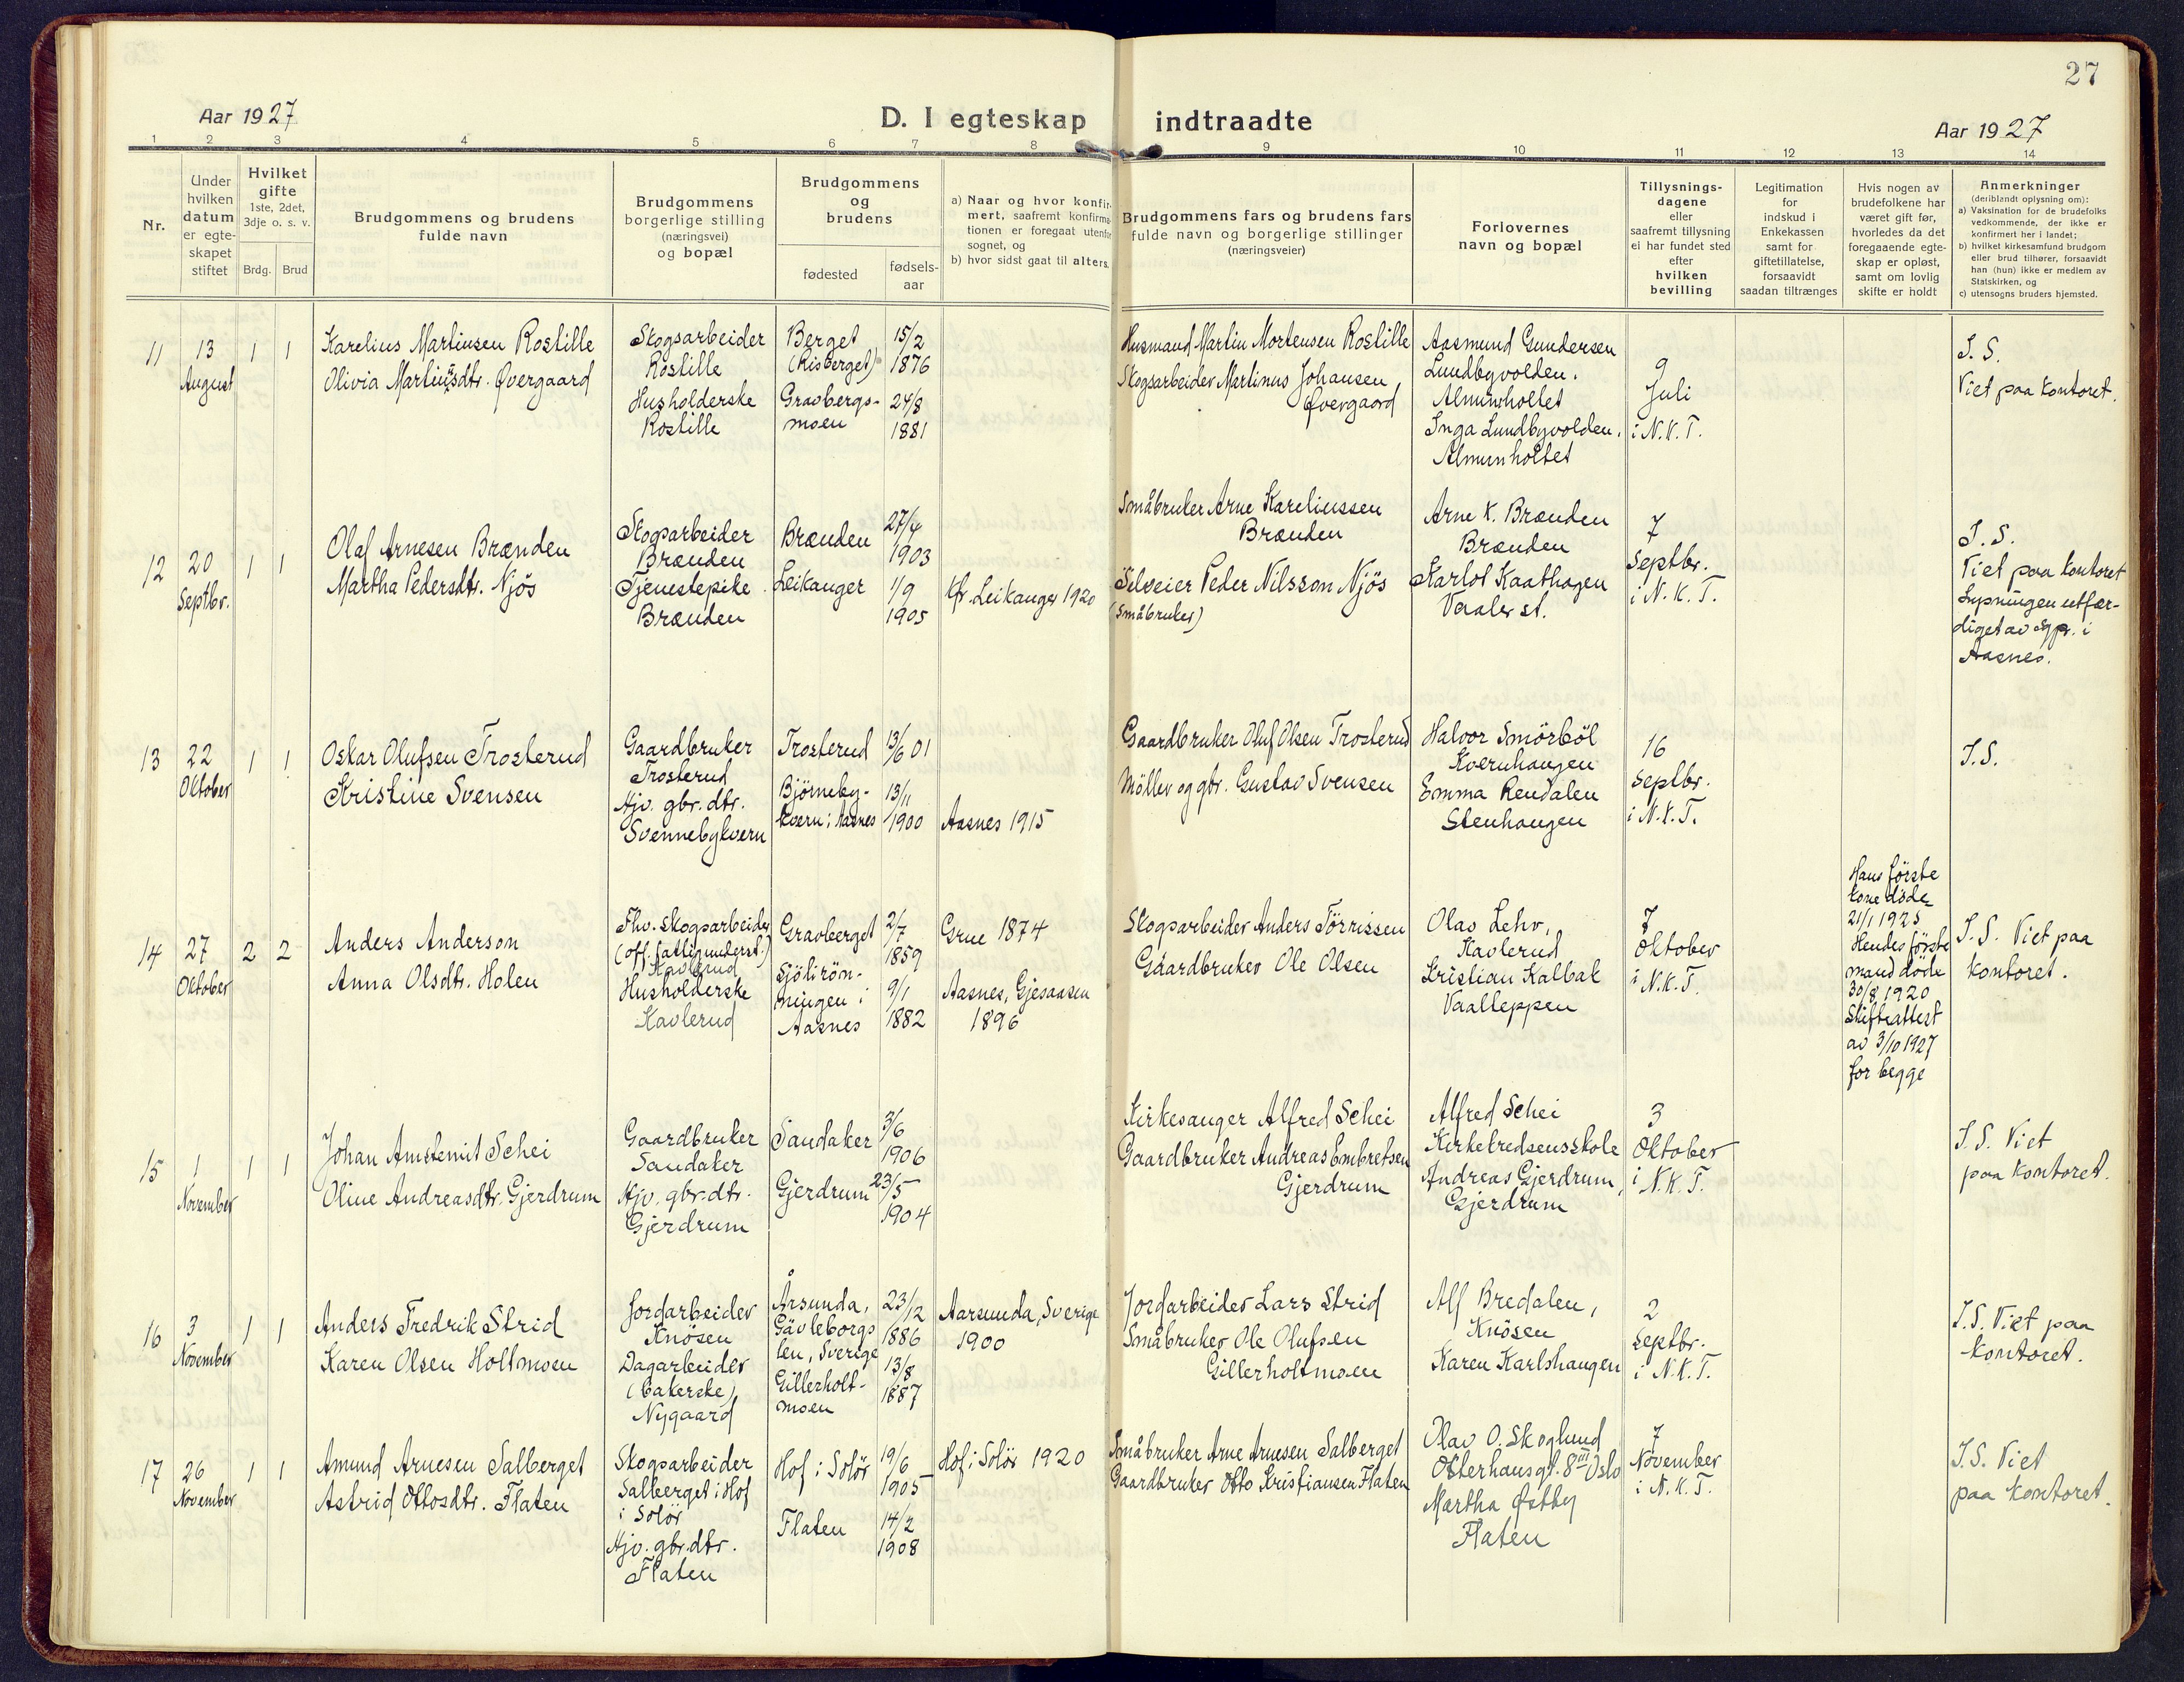 27
Aar 1927
D. I egteskap indtraadte
Aar 1927
1 2 3 4 5 6 7 8 9 10 11 12 13 14
Nr.
Under
hvilken
datum
er egte-
skapet
stiftet
Hvilket
gifte
1ste, 2det,
3dje o. s. v.
Brdg. Brud
Brudgommens og brudens
fulde navn
Brudgommens
borgerlige stilling
(næringsvei)
og bopæl
Brudgommens
og
brudens
fødested
fødsels-
aar
a) Naar og hvor konfir-
mert, saafremt konfirma-
tionen er foregaat utenfor
sognet, og
b) hvor sidst gaat til alters.
Brudgommens fars og brudens fars
fulde navn og borgerlige stillinger
(næringsveier)
Forlovernes
navn og bopæl
Tillysnings-
dagene
eller
saafremt tillysning
ei har fundet sted
efter
hvilken
bevilling
Legitimation
for
indskud i
Enkekassen
samt for
giftetillatelse,
forsaavidt
saadan tiltrænges
Hvis nogen av
brudefolkene har
været gift før,
hvorledes da det
foregaaende egte-
skap er opløst,
samt om lovlig
skifte er holdt
Anmerkninger
(deriblandt oplysning om):
a) Vaksination for de brudefolks
vedkommende, der ikke er
konfirmert her i landet;
b) hvilket kirkesamfund brudgom
eller brud tilhører, forsaavidt
han (hun) ikke er medlem av
Statskirken, og
c) utensogns bruders hjemsted.
11
13
August
1 1
Karelius Martinsen Rostille
Olivia Martinsdtr. Øvergaard
Skogsarbeider
Rostille
Husholderske
Rostille
Berget
(Risberget)
Gravbergs-
moen
15/2
1876
24/8
1881
Husmand Martin Mortensen Rostille
Skogsarbeider Martinus Johansen
Øvergaard
Aasmund Gundersen
Lundbyvolden.
Almunholtet
Inga Lundbyvolden,
Almunholtet
9
Juli
i N.K.T.
I. S.
Viet paa kontoret.
12
20
Septbr.
1 1
Olaf Arnesen Brænden
Martha Pedersdtr. Njös
Skogsarbeider
Brænden
Tjenestepike
Brænden
Brænden
Leikanger
27/4
1903
1/9
1905
Kfr. Leikanger 1920
Småbruker Arne Kareliussen
Brænden
Selveier Peder Nilsson Njös
(småbruker)
Arne K. Brænden
Brænden
Karlot Kaathagen
Vaaler st.
7
Septbr.
i N.K.T.
I. S.
Viet paa kontoret
Lysningen utfær-
diget av sgpr. i
Aasnes.
13
22
Oktober
1 1
Oskar Olufsen Trosterud
Kristine Svensen
Gaardbruker
Trosterud
Hjv. gbr. dtr.
Svennebykvern
Trosterud
Björneby-
kvern i Aasnes
13/6 01
13/11
1900
Aasnes 1915
Gaardbruker Oluf Olsen Trosterud
Möller og gbr. Gustav Svensen
Halvor Smörböl
Kvernhaugen
Emma Rendalen
Stenhaugen
16
septbr.
i N.K.T.
I.S.
14
27
Oktober
2 2
Anders Anderson
Anna Olsdtr. Holen
Fhv. skogsarbeider
(off. fattigunderst.)
Kavlerud
Husholderske
Kavlerud
Gravberget
Sjölirön-
ningen i
Aasnes
2/7
1859
9/1
1882
Grue 1874
Aasnes, Gjesaasen
1896
Skogsarbeider Anders Törrissen
Gaardbruker Ole Olsen
Olav Lehr,
Kavlerud
Kristian Kalbak
Vaalleppen
7
Oktober
i N.K.T.
Hans første
kone döde
21/1 1925
Hendes første
mand döde
30/8 1920
Skifteattest
av 3/10 1927
for begge
I. S. Viet paa
kontoret.
15
1
November
1 1
Johan Amstemit Schei
Oline Andreasdtr. Gjerdrum
Gaardbruker
Sandaker
Hjv. gbr. dtr.
Gjerdrum
Sandaker
Gjerdrum
3/6
1906
23/5
1904
Kirkesanger Alfred Schei
Gaardbruker Andreas Embretsen
Gjerdrum
Alfred Schei
Kirkekredsens skole
Andreas Gjerdrum,
Gjerdrum
3
Oktober
i N.K.T.
I. S. Viet
paa kontoret.
16
3
November
1 1
Anders Fredrik Strid
Karen Olsen Holtmoen
Jordarbeider
Knösen
Dagarbeider
(bakerske)
Nygaard
Årsunda,
Gävleborgs
len, Sverige
Gillerholt-
moen
23/12
1886
13/8
1887
Aarsunda, Sverige
1900
Jordarbeider Lars Strid
Småbruker Ole Olufsen
Gillerholtmoen
Alf Bredalen,
Knösen
Karen Karlshaugen
2
septbr.
i N.K.T.
I.S. Viet paa
kontoret.
17
26
November
1 1
Amund Arnesen Salberget
Astrid Ottosdtr. Flaten
Skogsarbeider
Salberget i Hof
i Solör
Hjv. gbr. dtr.
Flaten
Hof i Solör
Flaten
19/6
1905
14/2
1908
Hof i Solör 1920
Småbruker Arne Arnesen Salberget
Gaardbruker Otto Kristiansen Flaten
Olav O. Skoglund
Osterhausgt. 8 III Oslo
Martha Østby
Flaten
7
November
i N.K.T.
I.S. Viet
paa kontoret.